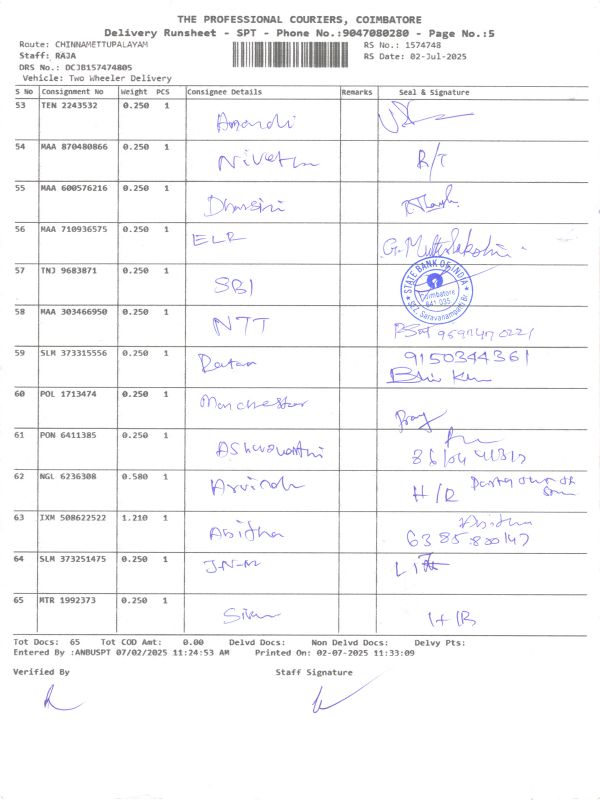 THE PROFESSIONAL COURIERS, COIMBATORE
Delivery Runsheet - SPT - Phone No.:9047080280 - Page No.:5
Route: CHINNAMETTUPALAYAM RS No.: 1574748
Staff: RAJA RS Date: 02-Jul-2025
DRS No.: DCJB157474805
Vehicle: Two Wheeler Delivery
S No Consignment No Weight PCS Consignee Details Remarks Seal & Signature
53 TEN 2243532 0.250 1
54 MAA 870480866 0.250 1 Nivetha R/T
55 MAA 600576216 0.250 1 Dharsini
56 MAA 710936575 0.250 1 ELR G. Muthulakshmi
57 TNJ 9683871 0.250 1 SBI
STATE BANK OF INDIA
Coimbatore
641 035
Saravanampatti Br.
58 MAA 303466950 0.250 1 NTT
59 SLM 373315556 0.250 1 Ratan 9150344361
60 POL 1713474 0.250 1 Manchester
61 PON 6411385 0.250 1 Ashwanthi
62 NGL 6236308 0.580 1 Arvindh H/R
63 IXM 508622522 1.210 1 Abitha Abitha
64 SLM 373251475 0.250 1 J-N-M
65 MTR 1992373 0.250 1 H/R
Tot Docs: 65 Tot COD Amt: 0.00 Delvd Docs: Non Delvd Docs: Delvy Pts:
Entered By :ANBUSPT 07/02/2025 11:24:53 AM Printed On: 02-07-2025 11:33:09
Verified By Staff Signature